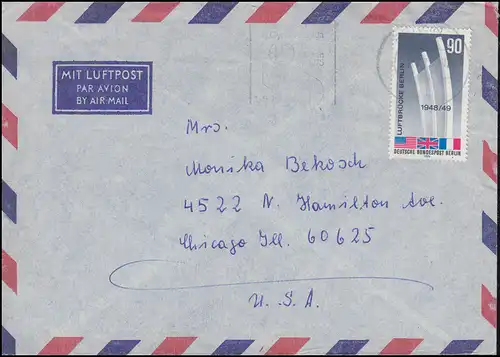 MIT LUFTPOST
PAR AVION
BY AIR MAIL
90
LUFTBRÜCKE BERLIN
1948/49
DEUTSCHE BUNDESPOST BERLIN
Mrs.
Monika Bekosch
4522 N. Hamilton Ave.
Chicago Ill. 60625
U.S.A.